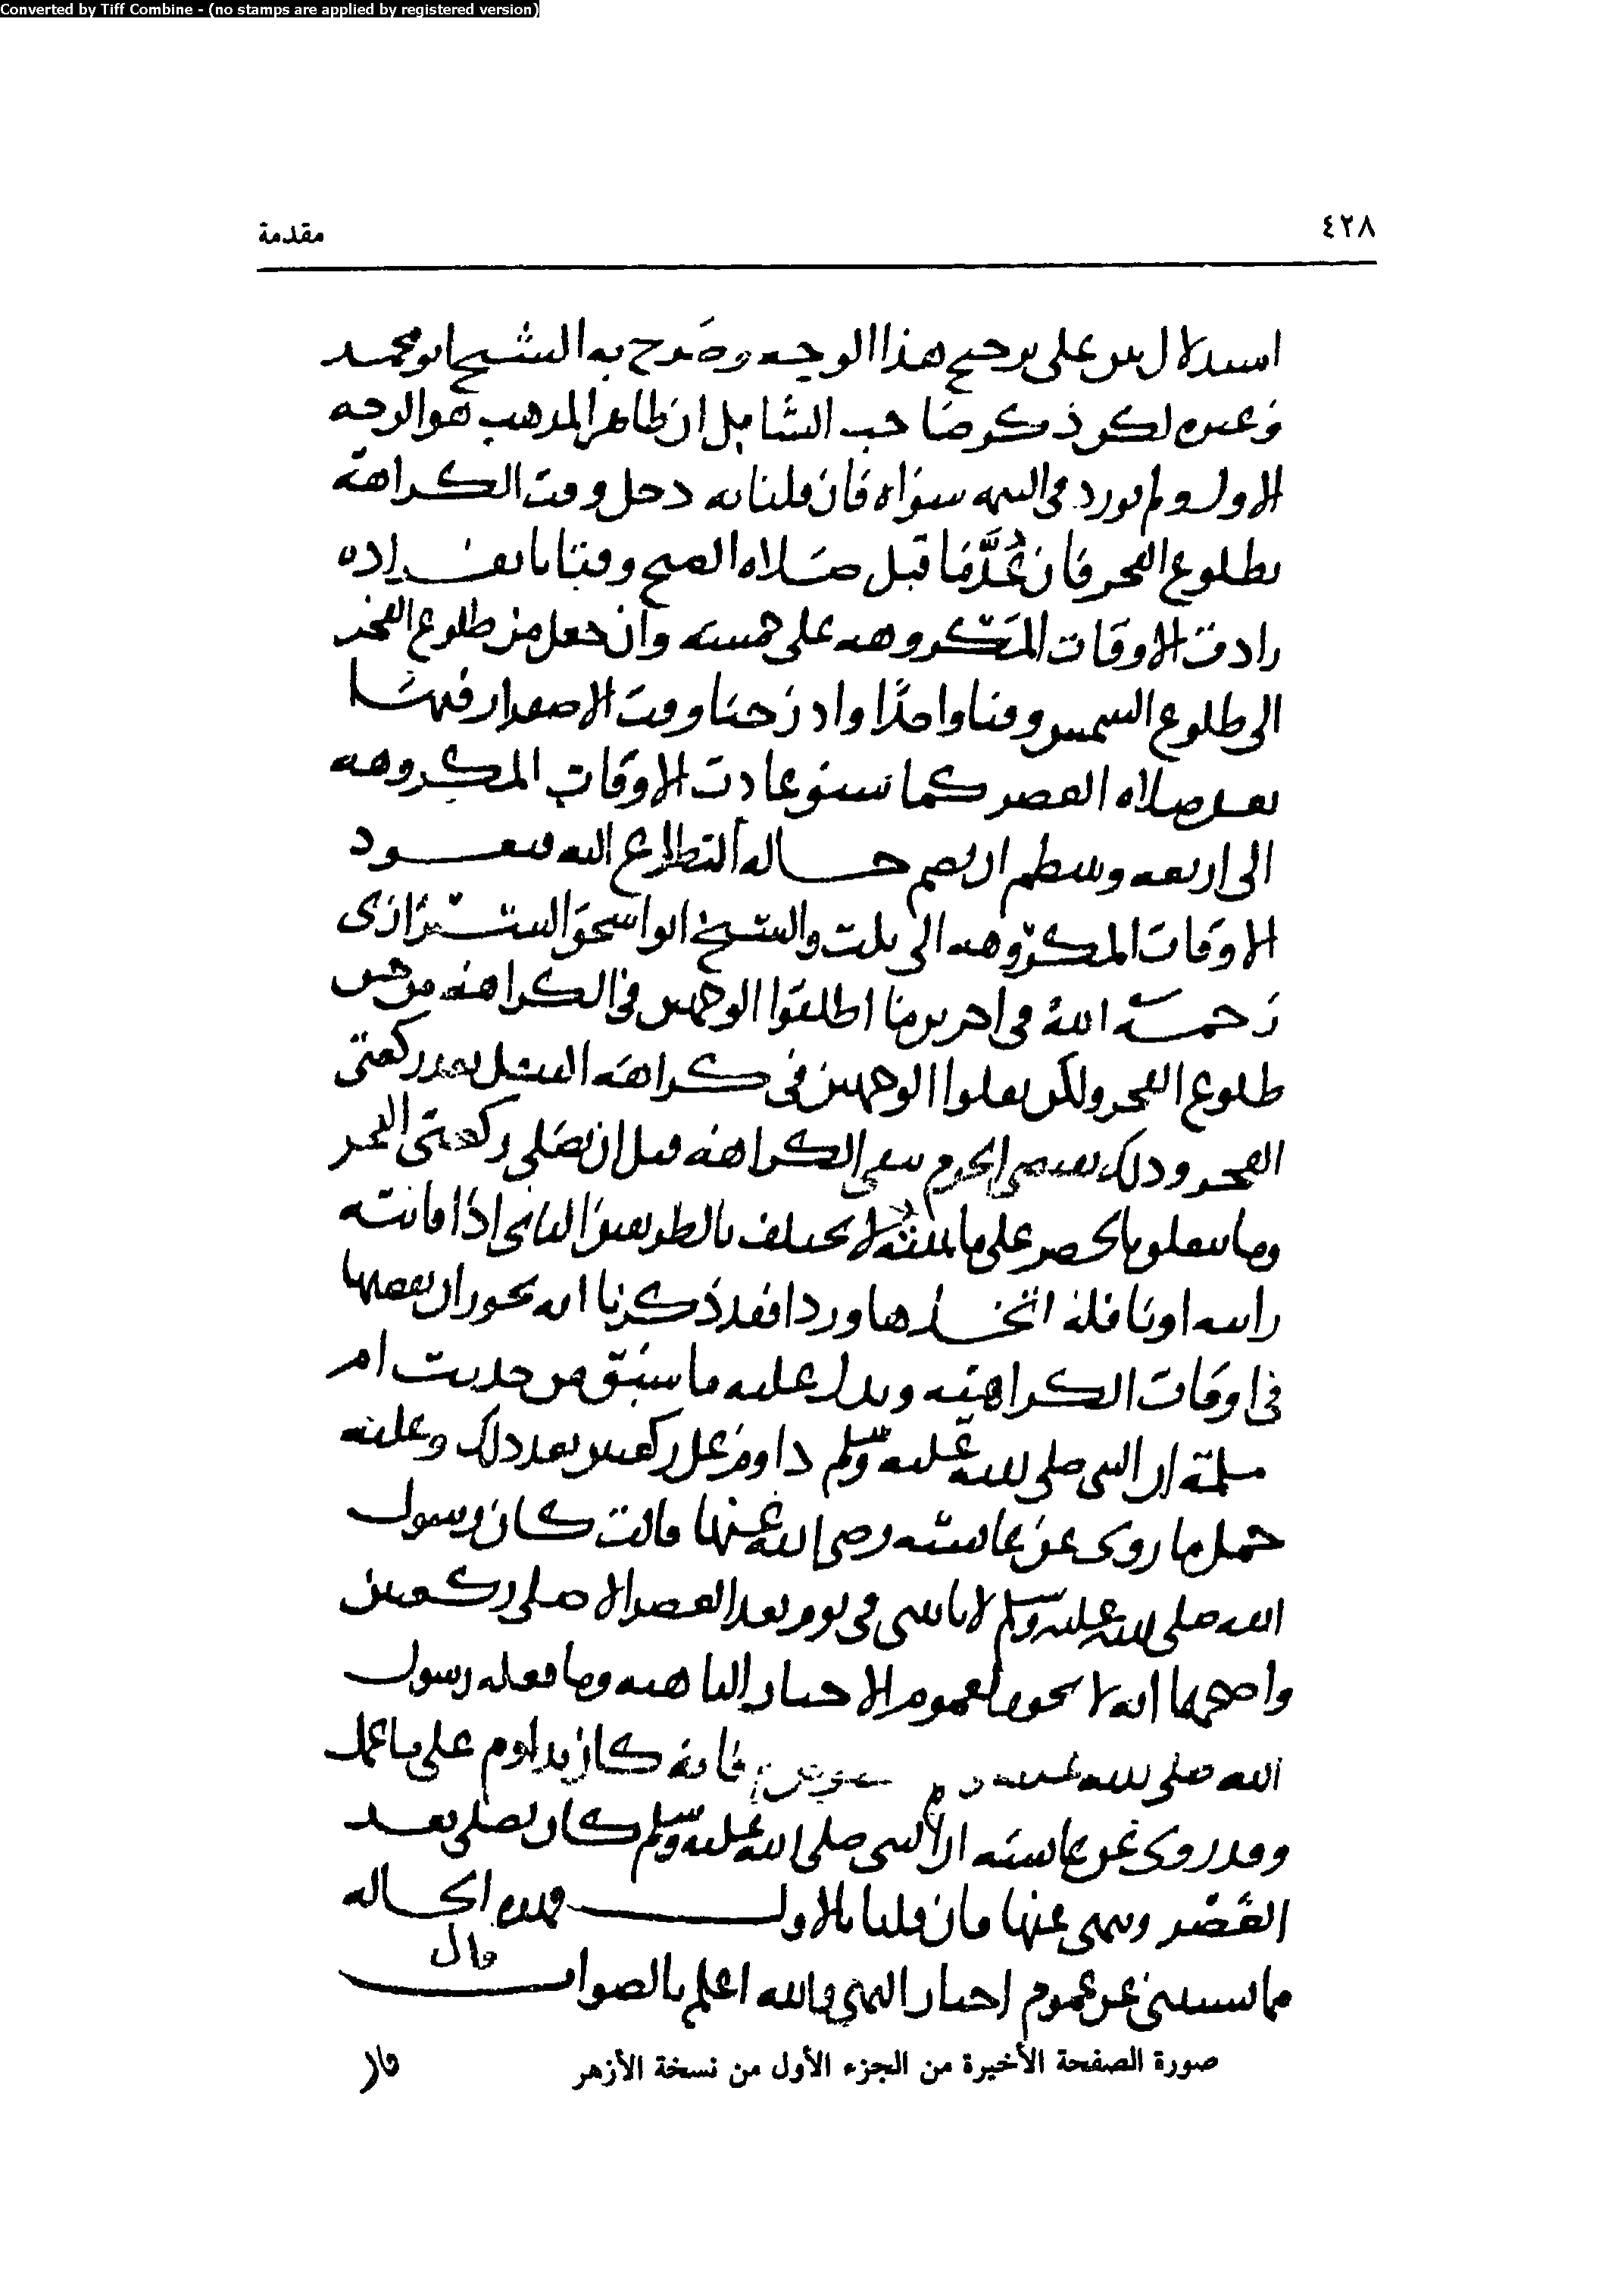 Converted by Tiff Combine - (no stamps are applied by registered version)
٤٢٨
مقدمة
استدلال بين على ترجيح هذا الوجه وصرح به الشيخ ابو محمد
وغيره لكن ذكر صاحب الشامل ان ظاهر المذهب هو الوجه
الاول ولم يورد في التتمه سواه فان قلنا انه دخل وقت الكراهة
بطلوع الفجر فان عُدَّ ما قبل صلاه الصبح وقتا بانفراده
زادت الاوقات المكروهه على خمسة وان جعل من طلوع الفجر
الى طلوع الشمس وقتا واحدًا وادرجنا وقت الاصفرار فيما
بعد صلاه العصر كما سبق عادت الاوقات المكروهه
الى اربعه وينتظم ان يضم حاله الطلوع اليه فيعود
الاوقات المكروهه الى ثلث والشيخ ابو اسحق الشيرازى
رحمه الله في اخرين منا اطلقوا الوجهين في الكراهة من حين
طلوع الفجر ولكن نقلوا الوجهين في كراهة التنفل بعد ركعتى
الفجر وذلك يقتضى الجزم بنفى الكراهة قبل ان يصلى ركعتى الفجر
وما يتعلق بالحصر على ما بيّنته لا يختلف بالطريقين الثانى اذا فاتته
راتبه او نافلة اتخذها وردا فقد ذكرنا انه يجوز ان يقضيها
فى اوقات الكراهيه ويدل عليه ما سبق من حديث ام
سلمة ان النبى صلى الله عليه وسلم داوم على ركعتين بعد ذلك وعليه
حمل ما روى عن عائشه رضى الله عنها قالت كان رسول
الله صلى الله عليه وسلم لا ياتينى في يوم بعد العصر الا صلى ركعتين
واصحهما انه لا يجوز لعموم الاخبار الناهيه وما فعله رسول
الله صلى الله عليه وسلم فانه كان يداوم على ما عمل
وقد روى عن عائشه ان النبى صلى الله عليه وسلم كان يصلى بعد
العصر وينهى عنها فان قلنا بالاول فهذه الحاله
مما يستثنى عن عموم اخبار النهي والله اعلم بالصواب
قال
صورة الصفحة الأخيرة من الجزء الأول من نسخة الأزهر
قال